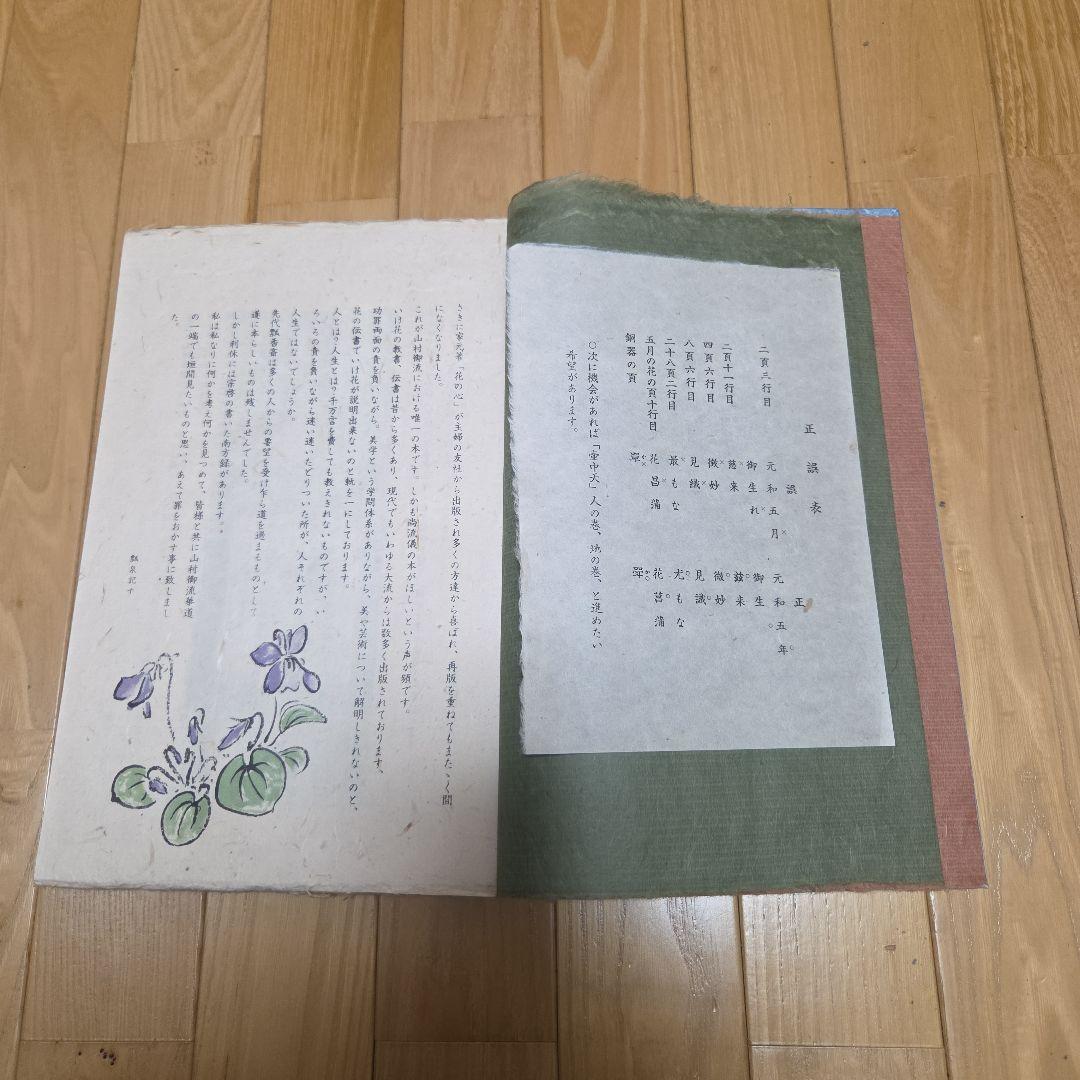 正誤表
誤
正
二頁三行目 元和五月 元和五年
二頁十一行目 御生れ 御生
四頁六行目 慈来 茲来
八頁六行目 微妙 微妙
二十六頁二行目 見織 見識
五月の花の頁十行目 最もな 尤もな
花昌蒲 花菖蒲
銅器の頁
○次に機会があれば「壷中天」人の巻、地の巻、と進めたい
希望があります。
さきに家元著「花の心」が主婦の友社から出版され多くの方達から喜ばれ、再版を重ねてもまたゝく間
になくなりました。
これが山村御流における唯一の本です。しかも尚流儀の本がほしいという声が頻です。
いけ花の教書、伝書は昔から多くあり、現代でもいわゆる大流からは数多く出版されております。
功罪両面の責を負いながら。美学という学問体系がありながら、美や芸術について解明しきれないのと、
花の伝書でいけ花が説明出来ないのと軌を一にしております。
人とは?人生とは?千万言を費しても教えきれないものですが、い
ろいろの責を負いながら迷い迷いたどりついた所が、人それぞれの
人生ではないでしょうか。
先代瓢香斎は多くの人からの要望を受け乍ら道を過まるものとして
遂に本らしいものは残しませんでした。
しかし利休には宗啓の書いた南方録があります。
私は私なりに何かを考え何かを見つめて、皆様と共に山村御流華道
の一端でも垣間見たいものと思い、あえて罪をおかす事に致しまし
た。
瓢泉記す